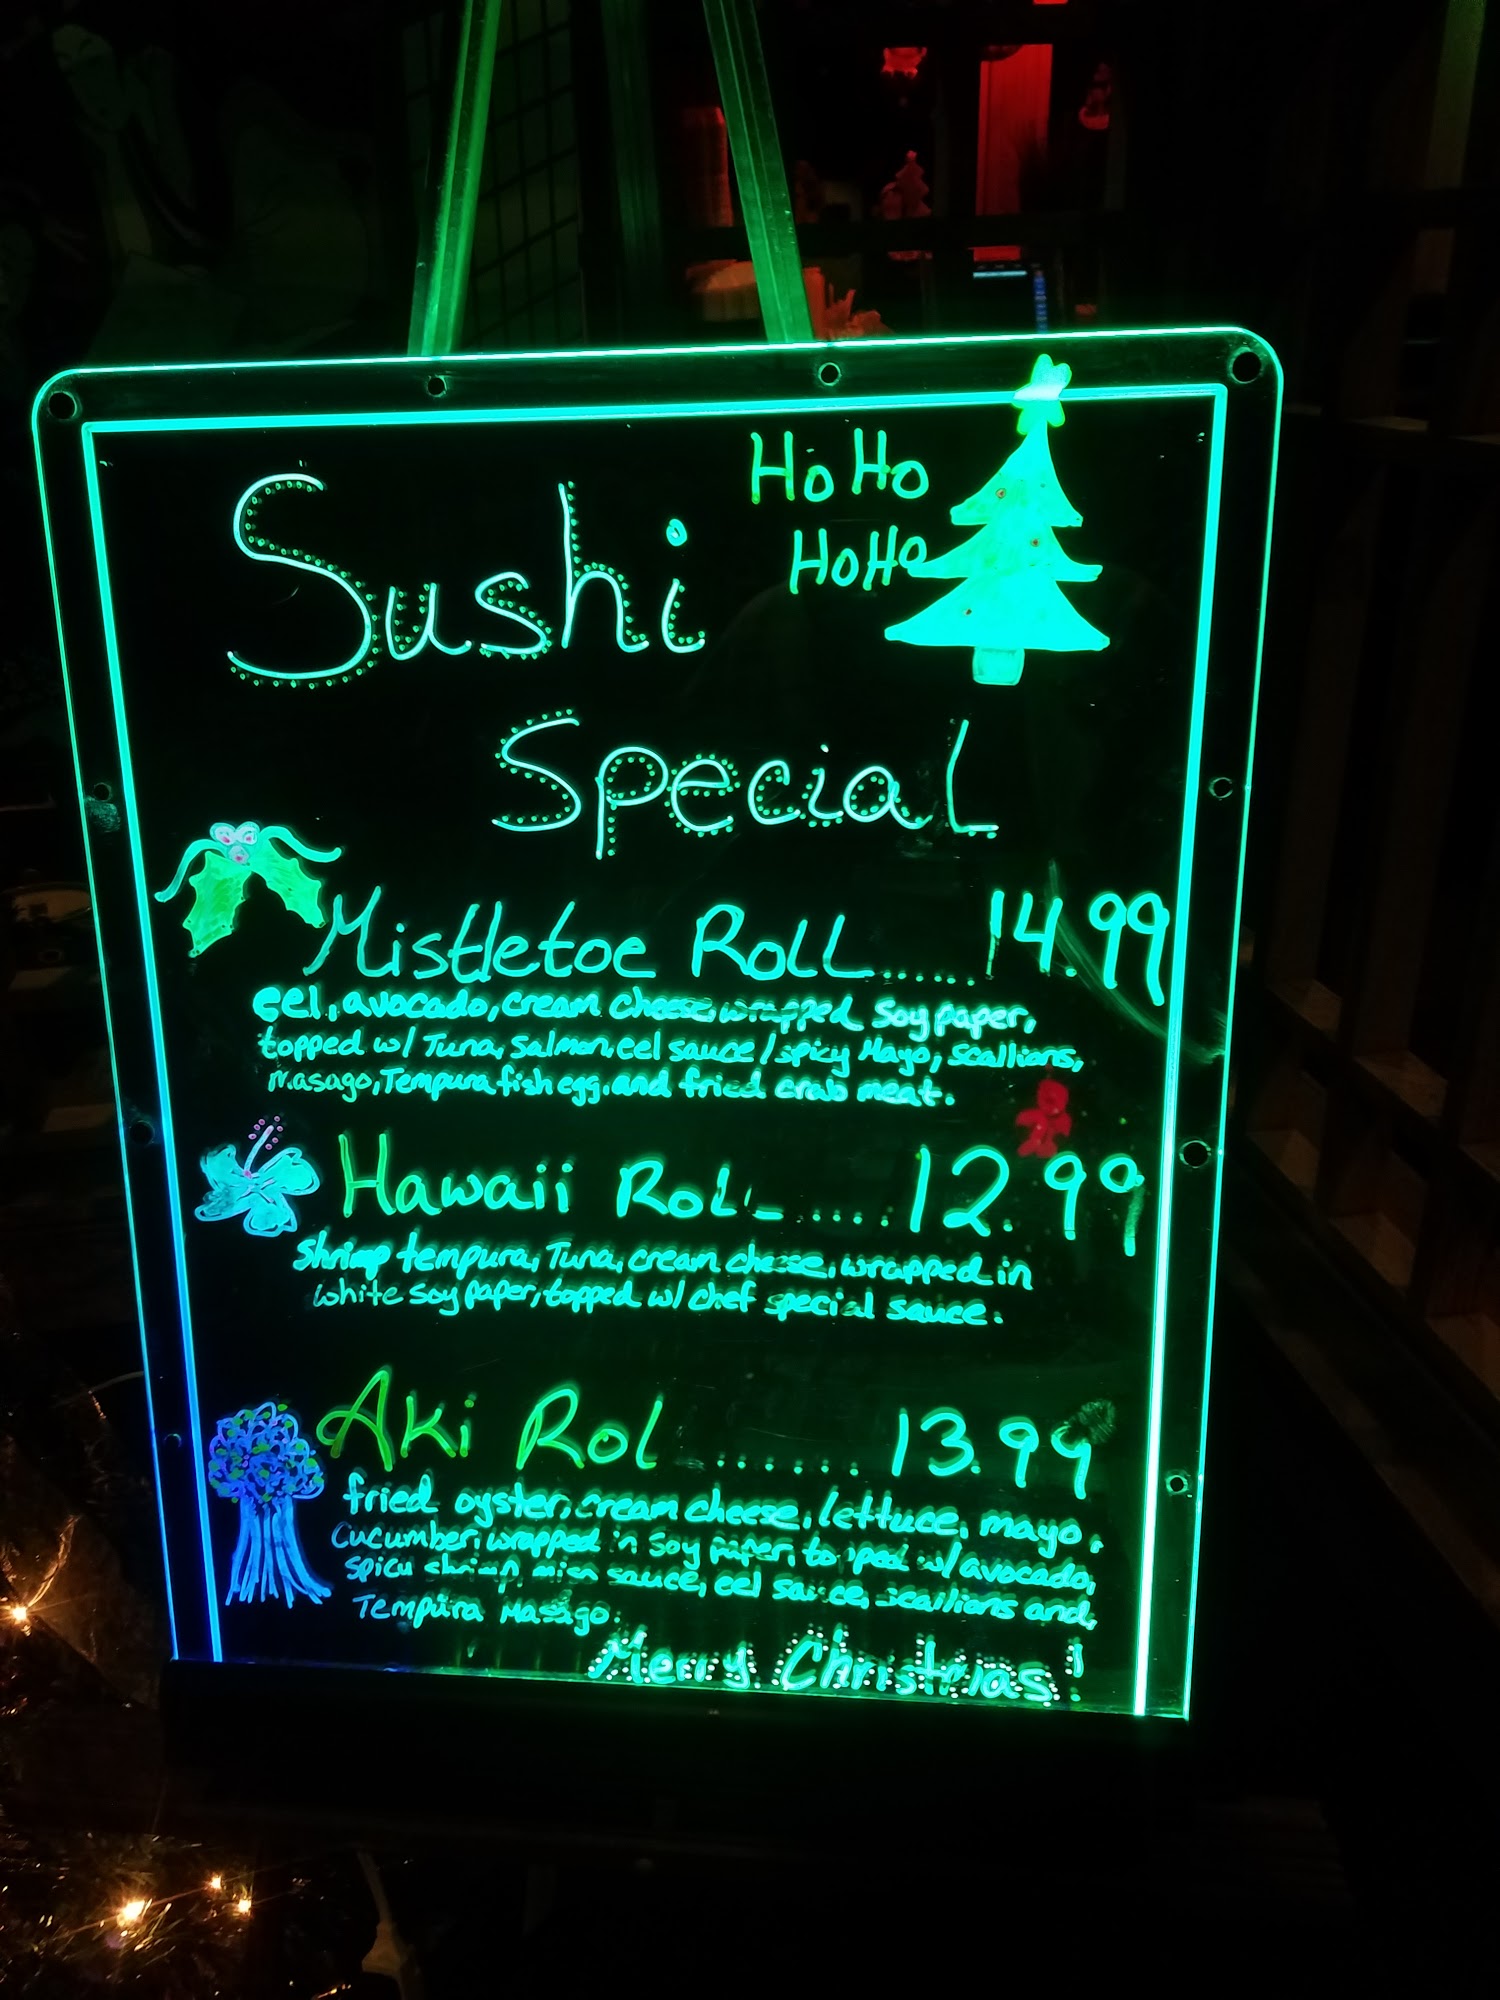 Ho Ho
HoHo
Sushi
Special
Mistletoe Roll......14.99
eel, avocado, cream cheese, wrapped soy paper,
topped w/ Tuna, Salmon, eel sauce / spicy Mayo, scallians,
masago, Tempura fish egg, and fried crab meat.
Hawaii Roll.....12.99
shrimp tempura, Tuna, cream cheese, wrapped in
white soy paper, topped w/ chef special sauce.
Aki Rol.......13.99
fried oyster, cream cheese, lettuce, mayo,
Cucumber, wrapped in soy paper, topped w/ avocado,
spicy shrimp, sauce, eel sauce, scallions and,
Tempura Masago.
Merry Christmas!